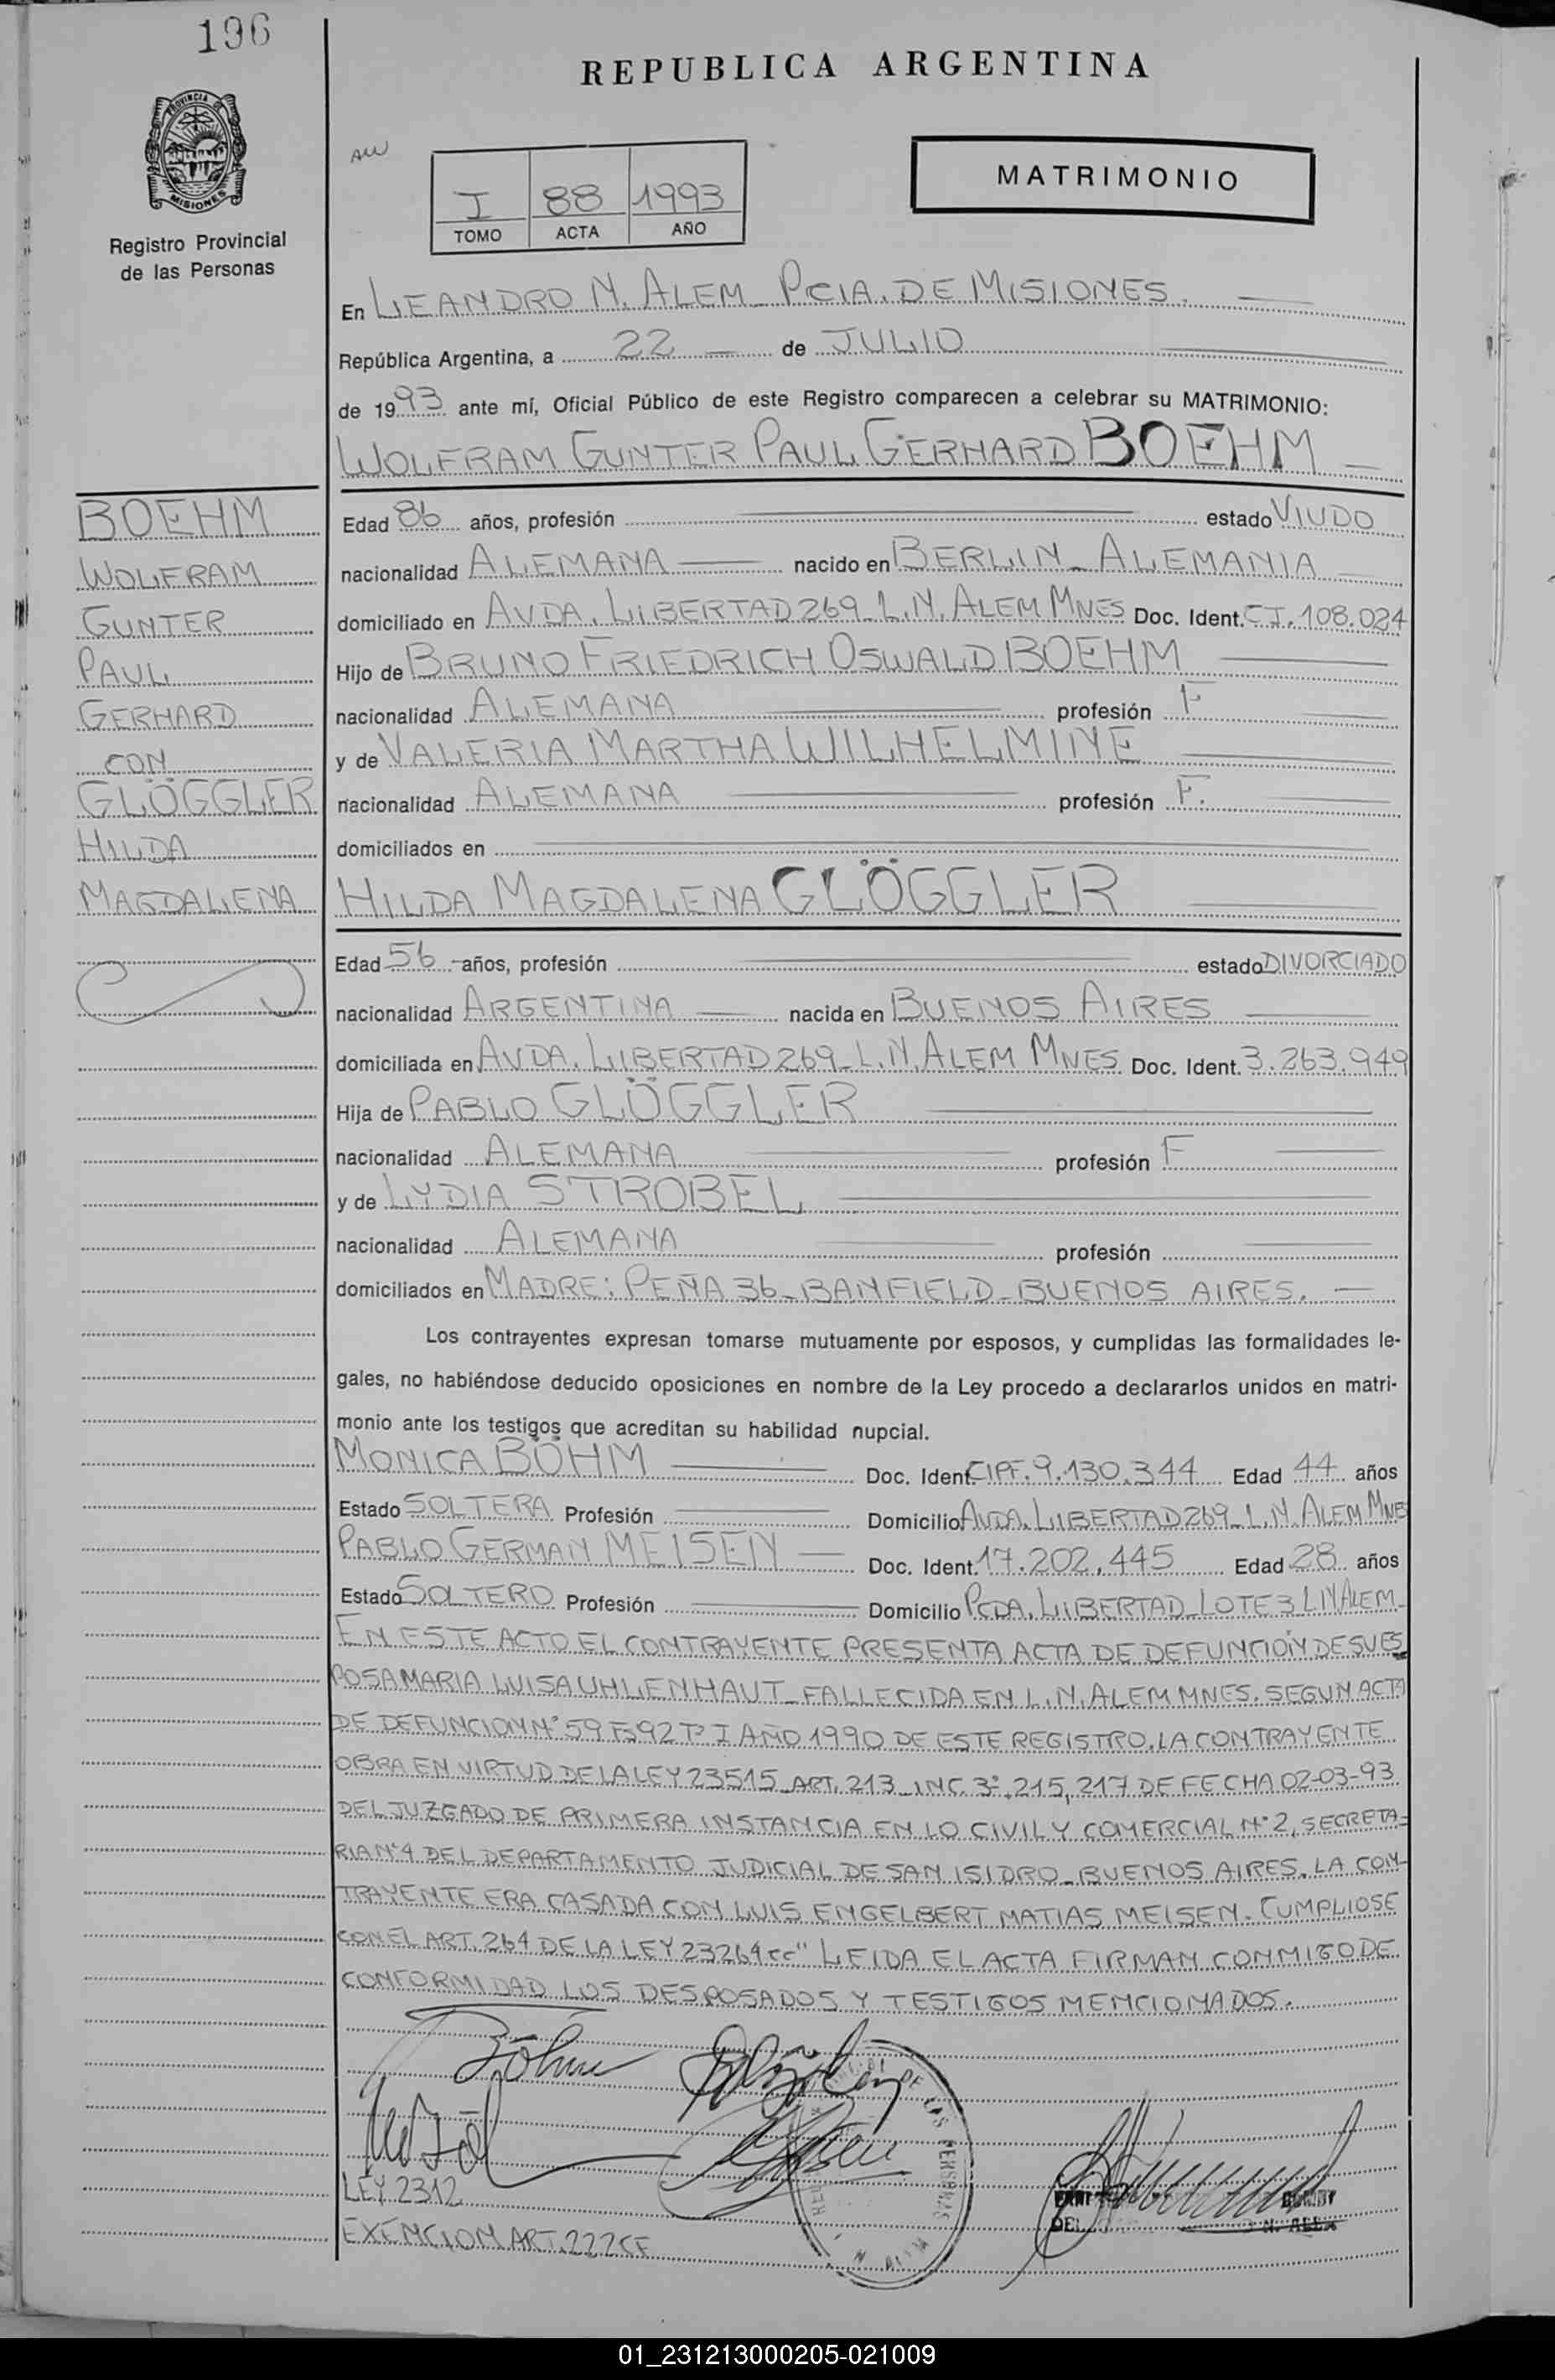 196
REPUBLICA ARGENTINA
PROVINCIA DE
MISIONES
Registro Provincial
de las Personas
I 88 1993
TOMO ACTA AÑO
MATRIMONIO
En LEANDRO N. ALEM_ PCIA. DE MISIONES.
República Argentina, a 22 de JULIO
de 1993 ante mí, Oficial Público de este Registro comparecen a celebrar su MATRIMONIO:
WOLFRAM GUNTER PAUL GERHARD BOEHM
BOEHM
WOLFRAM
GUNTER
PAUL
GERHARD
CON
GLÖGGLER
HILDA
MAGDALENA
Edad 86 años, profesión estado VIUDO
nacionalidad ALEMANA nacido en BERLIN_ ALEMANIA
domiciliado en AVDA. LIBERTAD 269_L.N. ALEM MNES Doc. Ident. C.I. 108.024
Hijo de BRUNO FRIEDRICH OSWALD BOEHM
nacionalidad ALEMANA profesión F
y de VALERIA MARTHA WILHELMINE
nacionalidad ALEMANA profesión F.
domiciliados en
HILDA MAGDALENA GLÖGGLER
Edad 56 años, profesión estado DIVORCIADO
nacionalidad ARGENTINA nacida en BUENOS AIRES
domiciliada en AVDA. LIBERTAD 269_L.N. ALEM MNES. Doc. Ident. 3.263.949
Hija de PABLO GLÖGGLER
nacionalidad ALEMANA profesión F
y de LYDIA STROBEL
nacionalidad ALEMANA profesión
domiciliados en MADRE: PEÑA 36_BANFIELD_BUENOS AIRES.
Los contrayentes expresan tomarse mutuamente por esposos, y cumplidas las formalidades le-
gales, no habiéndose deducido oposiciones en nombre de la Ley procedo a declararlos unidos en matri-
monio ante los testigos que acreditan su habilidad nupcial.
MONICA BÖHM Doc. Ident. CIPF. 9.130.344 Edad 44 años
Estado SOLTERA Profesión Domicilio AVDA. LIBERTAD 269_L.N. ALEM MNES
PABLO GERMAN MEISEN Doc. Ident. 17.202.445 Edad 28 años
Estado SOLTERO Profesión Domicilio PCDA. LIBERTAD_LOTE 3 LNALEM_
EN ESTE ACTO EL CONTRAYENTE PRESENTA ACTA DE DEFUNCIÓN DE SU ES_
POSA MARIA LUISA UHLENHAUT_FALLECIDA EN L.N. ALEM MNES. SEGUN ACTA
DE DEFUNCION Nº 59 Fº 92 Tº I AÑO 1990 DE ESTE REGISTRO. LA CONTRAYENTE
OBRA EN VIRTUD DE LA LEY 23515_ART. 213_INC. 3º, 215, 217 DE FECHA 02-03-93
DEL JUZGADO DE PRIMERA INSTANCIA EN LO CIVIL Y COMERCIAL Nº 2, SECRETA=
RIA Nº 4 DEL DEPARTAMENTO JUDICIAL DE SAN ISIDRO_BUENOS AIRES. LA CON-
TRAYENTE ERA CASADA CON LUIS ENGELBERT MATIAS MEISEN. CUMPLIOSE
CON EL ART. 264 DE LA LEY 23264 cc" LEIDA EL ACTA FIRMAN CONMIGO DE
CONFORMIDAD LOS DESPOSADOS Y TESTIGOS MENCIONADOS.
Böhm
DE LAS PERSONAS
LEY 2312
EXENCION ART. 222 CF
01_231213000205-021009